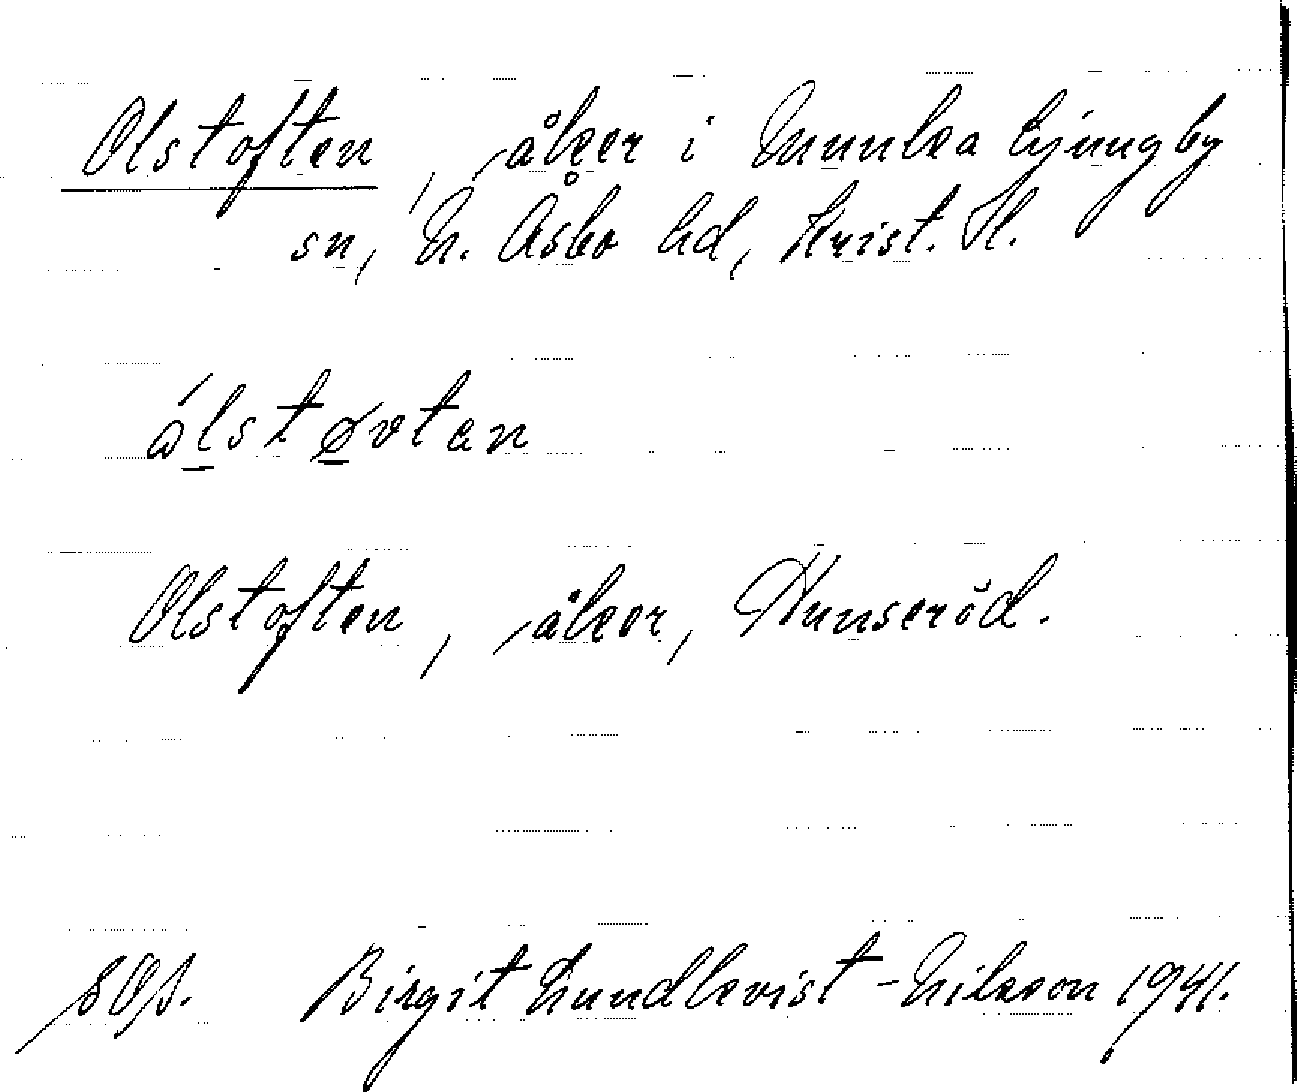 Olstoften, åker i Munka Ljungby
sn, N. Åsbo hd, Krist. H.
ålstøvtan
Olstoften, åker, Hunseröd.
Birgit Lundkvist-Nilsson 1941.